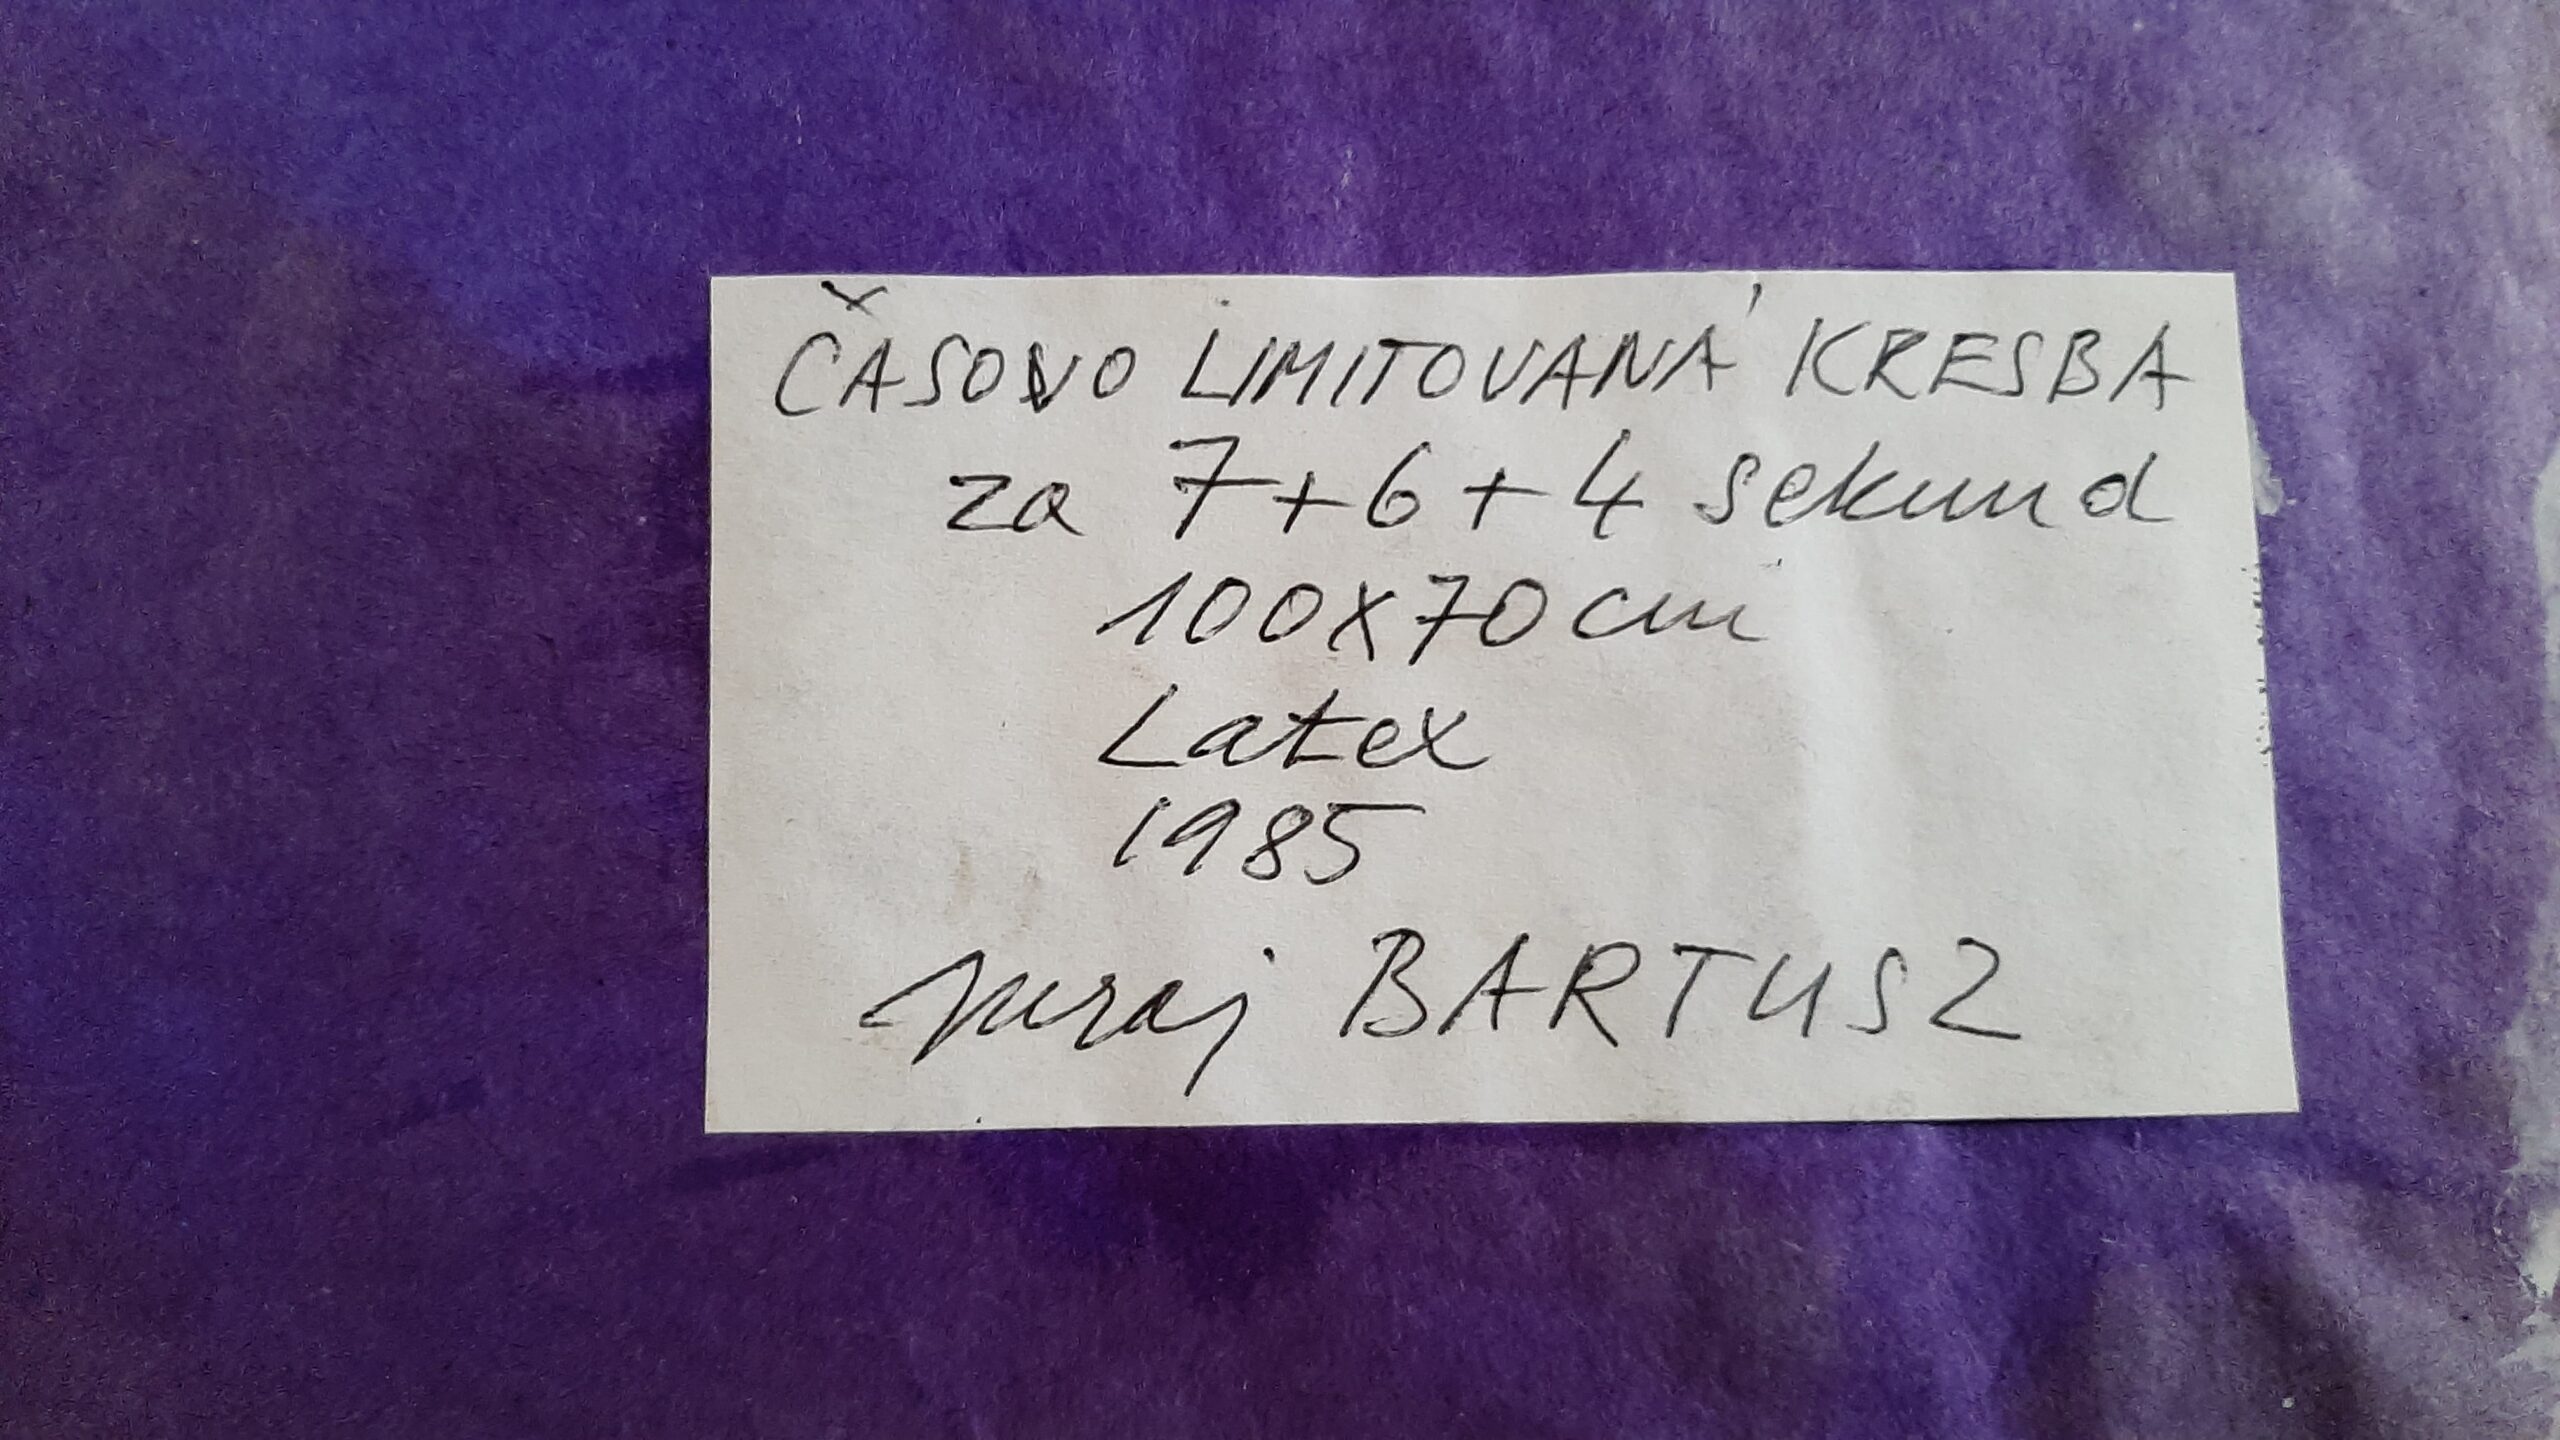 ČASOVO LIMITOVANÁ KRESBA
za 7+6+4 sekund
100x70cm
Latex
1985
Juraj BARTUSZ